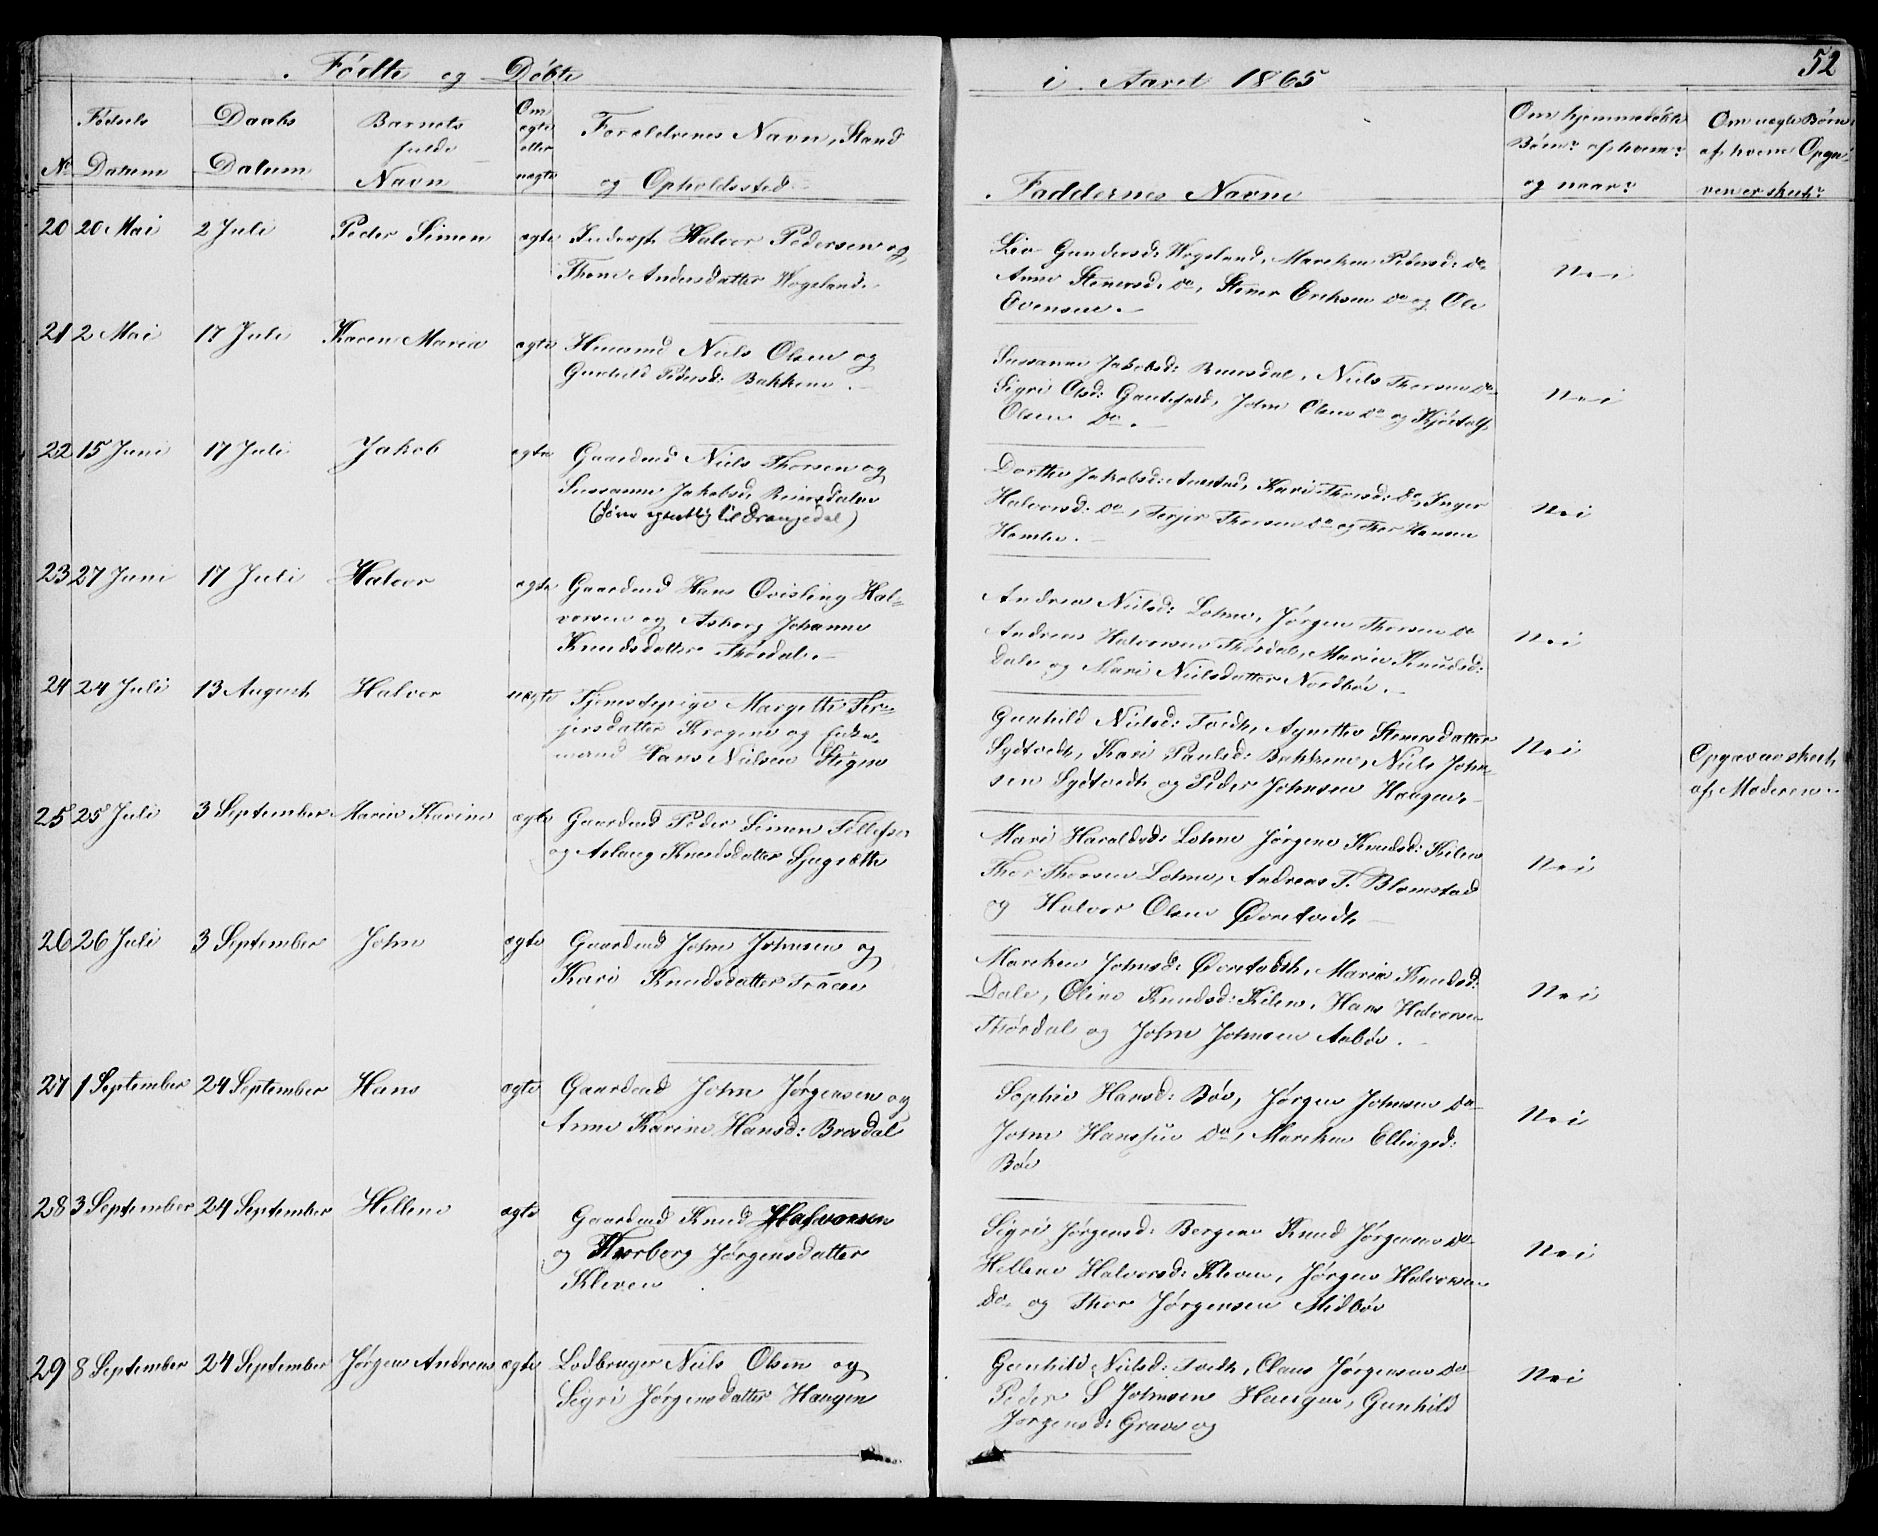 Fødte og Døbte
i Aaret 1865
52
No
Fødsels Datum
Daabs Datum
Barnets fulde Navn
Om ægte eller uægte
Forældrenes Navn, Stand og Opholdssted
Faddernes Navne
Om hjemmedøbte Børn: af hvem? og naar?
Om uægte Børn: af hvem Opgiven er skeet?
20 20 Mai 2 Juli Peder Simon ægte Inderst Halvor Pedersen og
Thone Andersdatter Wogeland.
Liv Gundersd: Wogeland, Mareken Pedersd: Do
Anne Stenersd: Do, Stener Eriksen Do og Ole
Evensen.
Nei
21 2 Mai 17 Juli Karen Maria ægte Huusmd Niels Olsen og
Gunhild Pedersd: Bakkene.
Sussanne Jakobsd: Reinsdal, Niels Thorsen Do
Sigri Olsd: Gautefald, John Olsen Do og Kjøstolf
Olsen Do.
Nei
22 15 Juni 17 Juli Jakob ægte Gaardmd Niels Thorsen og
Sussanne Jakobsd. Reinsdalen
til Drangedal)
Dorthe Jakobsd: Kari Thorsd: Do, Inger
Halvorsd: Do, Terjer Thorsen Do og Thor Hansen
Nei
23 27 Juni 17 Juli Halvor ægte Gaardmd Hans Qvisling Hal-
vorsen og Asborg Johanne
Knudsdatter Thørdal.
Andrea Nielsd: Lohne, Jørgen Thorsen Do
Andreas Halvorsen Thørdal, Maria Knudsd:
Dale og Mari Nielsdatter Nordbøe.
Nei
24 24 Juli 13 August Halvor uægte Tjenestepige Margethe Ter-
jersdatter Krogene og
mand Hans Nielsen Stigen
Gunhild Nielsd: Tvedt, Agnethe Stenersdatter
Sydtvedt, Kari Paulsd: Bakkene, Niels John-
sen Sydtvedt og Peder Johnsen Haugene.
Nei
Opgav er skeet
af Moderen.
25 25 Juli 3 September Maren Karine ægte Gaardmd Peder Simon Tellefsen
og Aslaug Knudsdatter
Mari Haraldsd: Lohne Jørgine Knudsd: Kilen
Thor Thorsen Lohne, Andreas T. Blomstad
og Halvor Olsen Øvretvedt
Nei
26 26 Juli 3 September John ægte Gaardmd John Johnsen og
Kari Knudsdatter
Mareken Johnsd: Øvretvedt, Maria Knudsd:
Dale, Oline Knudsd: Kilen, Hans Halvorsen
Thørdal og John Johnsen Aabøe.
Nei
27 1 September 24 September Hans ægte Gaardmd John Jørgensen og
Anne Karine Hansd: Brosdal
Sophie Hansd: Bøe, Jørgen Johnsen Do
John Hanssen Do, Mareken Ellingsd:
Bøe
Nei
28 3 September 24 September Hellene ægte Gaardmd Knud Halvorsen
og Thorberg Jørgensdatter
Kleven
Sigri Jørgensd: Bergene Knud Jørgensen Do
Hellene Halvorsd: Kleven, Jørgen Halvorsen
Do. og Thor Jørgensen Midbøe
Nei
29 8 September 24 September Jørgen Andreas ægte Lodbruger Niels Olsen og
Sigri Jørgensdatter Haugen
Gunhild Nielsd: Tvedt, Claus Jørgensen Do
Peder S Johnsen Haugen, Gunhild
Jørgensd: Grave og
Nei